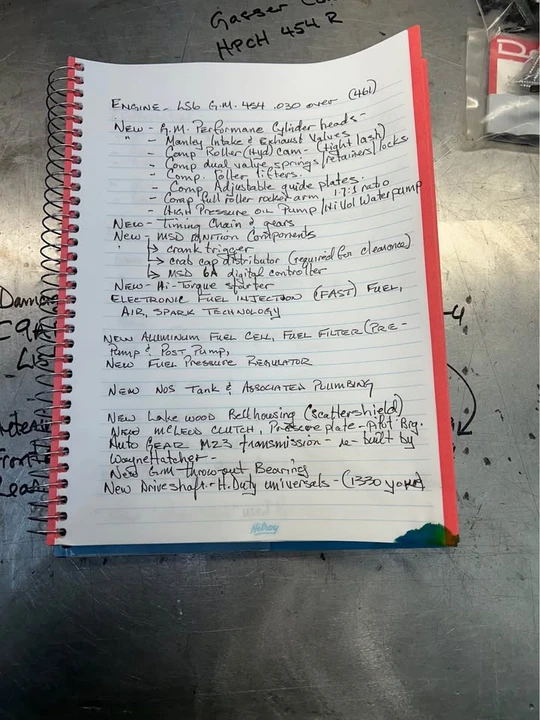 Gasser
HPCH 454 R
ENGINE - LS6 G.M. 454 .030 over (461)
New - G.M. Performane Cylinder heads -
" - Manley Intake & Exhaust Valves
- Comp Roller (Hyd) cam - (tight lash)
- Comp dual valve springs/retainers/locks.
- Comp. roller lifters.
- Comp Adjustable guide plates.
- Comp full roller rocker arm 1.7:1 ratio
- High Pressure Oil Pump/Hi Vol Water pump
New - Timing Chain & gears
New - MSD IGNITION Components
↳ crank trigger
↳ crab cap distributor (required for clearence)
↳ MSD 6A digital controller
New - Hi-Torque starter
ELECTRONIC FUEL INJECTION (FAST) FUEL,
AIR, SPARK TECHNOLOGY
NEW ALUMINUM FUEL CELL, FUEL FILTER (PRE-
Pump & POST Pump,
NEW FUEL PRESSURE REGULATOR
NEW NOS TANK & ASSOCIATED PLUMBING
NEW Lakewood Bellhousing (scattershield)
NEW MCLEOD CLUTCH, Pressure plate - Pilot Brg.
Auto GEAR M23 transmission - re-built by
Wayne Hatcher -
New G.M. throw-out Bearing
New Driveshaft - H. Duty universals - (1330 yoke)
Hilroy
-4